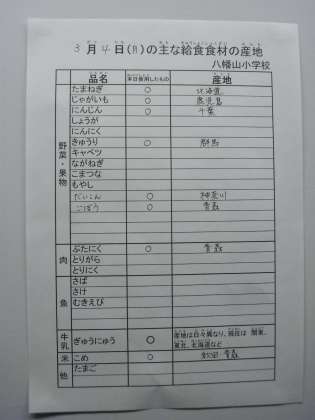 3月4日(月)の主な給食食材の産地
八幡山小学校
品名 本日使用したもの 産地
野菜・果物
たまねぎ ○ 北海道
じゃがいも ○ 鹿児島
にんじん ○ 千葉
しょうが
にんにく
きゅうり ○ 群馬
キャベツ
ながねぎ
こまつな
もやし
だいこん ○ 神奈川
ごぼう ○ 青森
肉
ぶたにく ○ 青森
とりがら
とりにく
魚
さば
さけ
むきえび
牛乳 ぎゅうにゅう ○ 産地は日々異なり、現在は 関東、
東北、北海道など
米 こめ ○ 秋田 青森
他 たまご